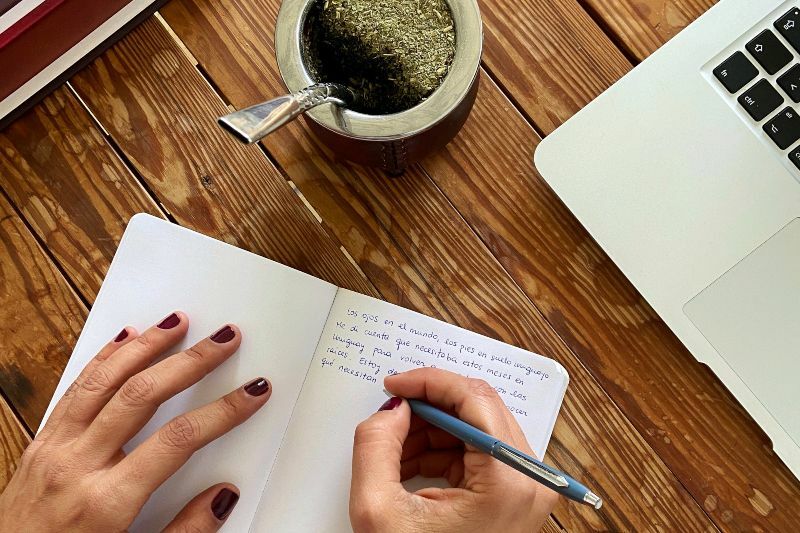 Los ojos en el mundo, los pies en suelo uruguayo
Me di cuenta que necesitaba estos meses en
Uruguay para volver a con las
raíces. Estoy de
qué necesitan
fn
ctrl